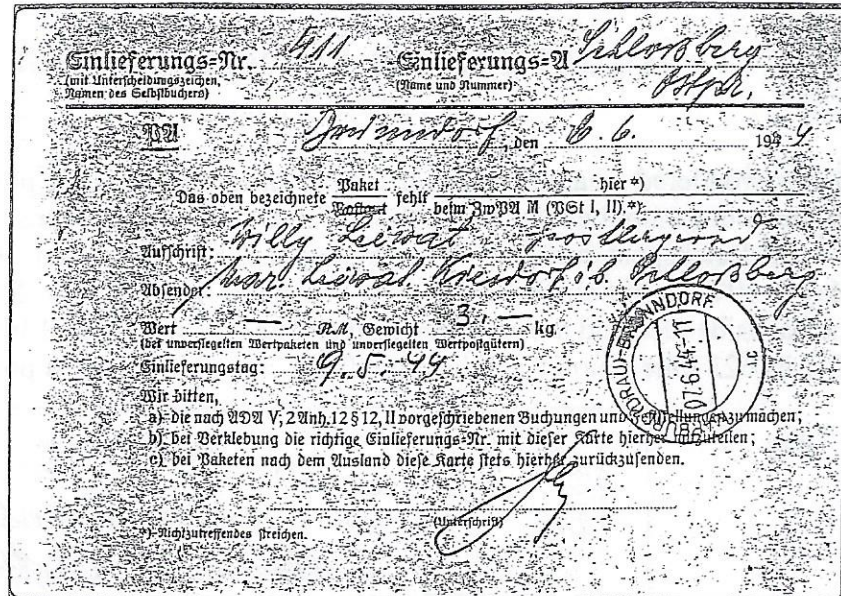 Einlieferungs-Nr. 411 Einlieferungs-A Schloßberg
(mit Unterscheidungszeichen, Namen des Selbstbuchers) (Name und Nummer) Ostpr.
PA Brunndorf, den 6. 6. 1944
Das oben bezeichnete Paket Postgut fehlt hier *) beim ZwPA M (PSt I, II) *)
Aufschrift: Willy Leewat postlagernd
Absender: Mar. Leewat Kiesdorf üb. Schloßberg
Wert — RM, Gewicht 3.— kg
(bei unversiegelten Wertpaketen und unversiegelten Wertpostgütern)
Einlieferungstag: 9. 5. 44
Wir bitten,
a) die nach ADA V, 2 Anh. 12 § 12, II vorgeschriebenen Buchungen und zu machen;
b) bei Verklebung die richtige Einlieferungs-Nr. mit dieser Karte hierher mitzuteilen;
c) bei Paketen nach dem Ausland diese Karte stets hierher zurückzusenden.
(Unterschrift)
*) Nichtzutreffendes streichen.
BRUNNDORF
07.6.44.-17